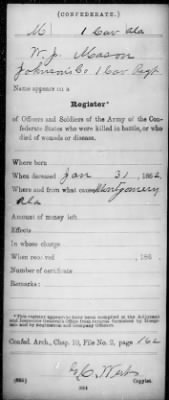 (CONFEDERATE.)
M 1 Cav Ala
W. J. Mason
Johnson's Co 1 Cav Regt
Name appears on a
Register*
of Officers and Soldiers of the Army of the Con-
federate States who were killed in battle, or who
died of wounds or disease.
Where born
When deceased Jan 31, 1862
Where and from what cause Montgomery
Ala
Amount of money left
Effects
In whose charge
When received , 186 .
Number of certificate
Remarks:
*This register appears to have been compiled in the Adjutant
and Inspector General's Office from returns furnished by Hospi-
tals and by Regimental and Company Officers.
Confed. Arch., Chap. 10, File No. 2, page 162
Copyist.